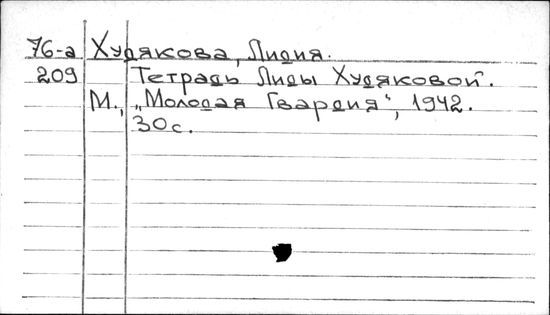 76-а Худякова, Лидия.
209 Тетрадь Лиды Худяковой.
М., „Молодая Гвардия“, 1942.
30с.